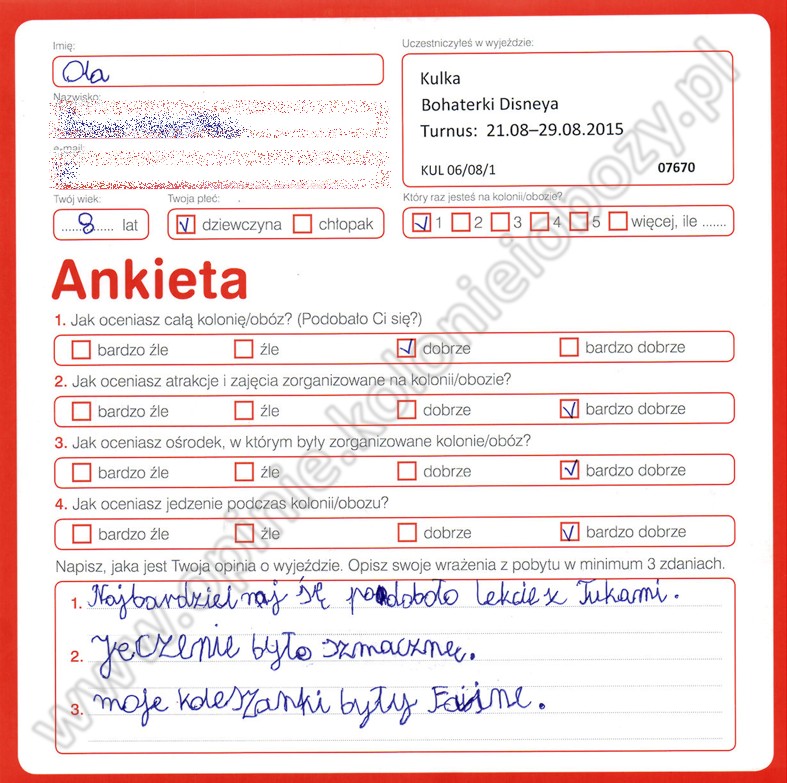 Imię:
Ola
Uczestniczyłeś w wyjeździe:
Kulka
Bohaterki Disneya
Turnus: 21.08–29.08.2015
KUL 06/08/1 07670
Nazwisko:
e-mail:
Twój wiek:
8 lat
Twoja płeć:
dziewczyna chłopak
Który raz jesteś na kolonii/obozie?
1 2 3 4 5 więcej, ile .......
Ankieta
1. Jak oceniasz całą kolonię/obóz? (Podobało Ci się?)
bardzo źle źle dobrze bardzo dobrze
2. Jak oceniasz atrakcje i zajęcia zorganizowane na kolonii/obozie?
bardzo źle źle dobrze bardzo dobrze
3. Jak oceniasz ośrodek, w którym były zorganizowane kolonie/obóz?
bardzo źle źle dobrze bardzo dobrze
4. Jak oceniasz jedzenie podczas kolonii/obozu?
bardzo źle źle dobrze bardzo dobrze
Napisz, jaka jest Twoja opinia o wyjeździe. Opisz swoje wrażenia z pobytu w minimum 3 zdaniach.
1. Najbardziel się lekcie z Tukami.
2. jeczenie było szmacznę.
3. moje koleszanki były
www.opinie.kolonieiobozy.pl